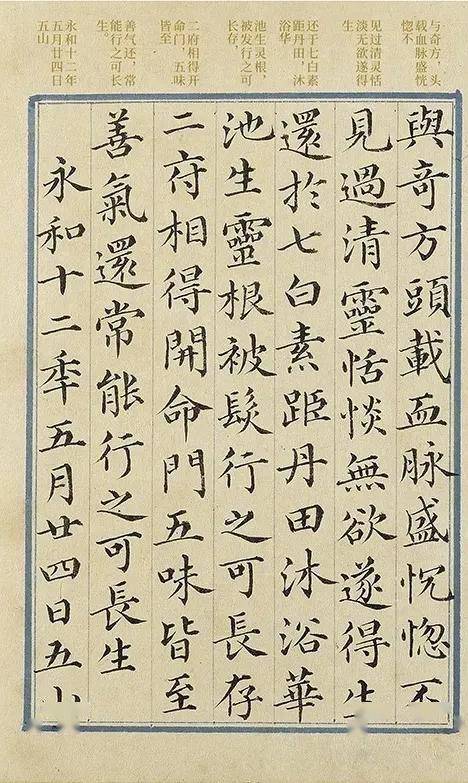 与奇方，头
载血脉盛恍
惚不
见过清灵恬
淡无欲遂得
生
还于七白素
距丹田，沐
浴华
池生灵根，
被发行之可
长存。
二府相得开
命门，五味
皆至
善气还，常
能行之可长
生。
永和十二年
五月廿四日
五山
與竒方頭載血脉盛怳惚不
見過清靈恬惔無欲遂得生
還於七白素距丹田沐浴華
池生靈根被髮行之可長存
二府相得開命門五味皆至
善氣還常能行之可長生
永和十二秊五月廿四日五山